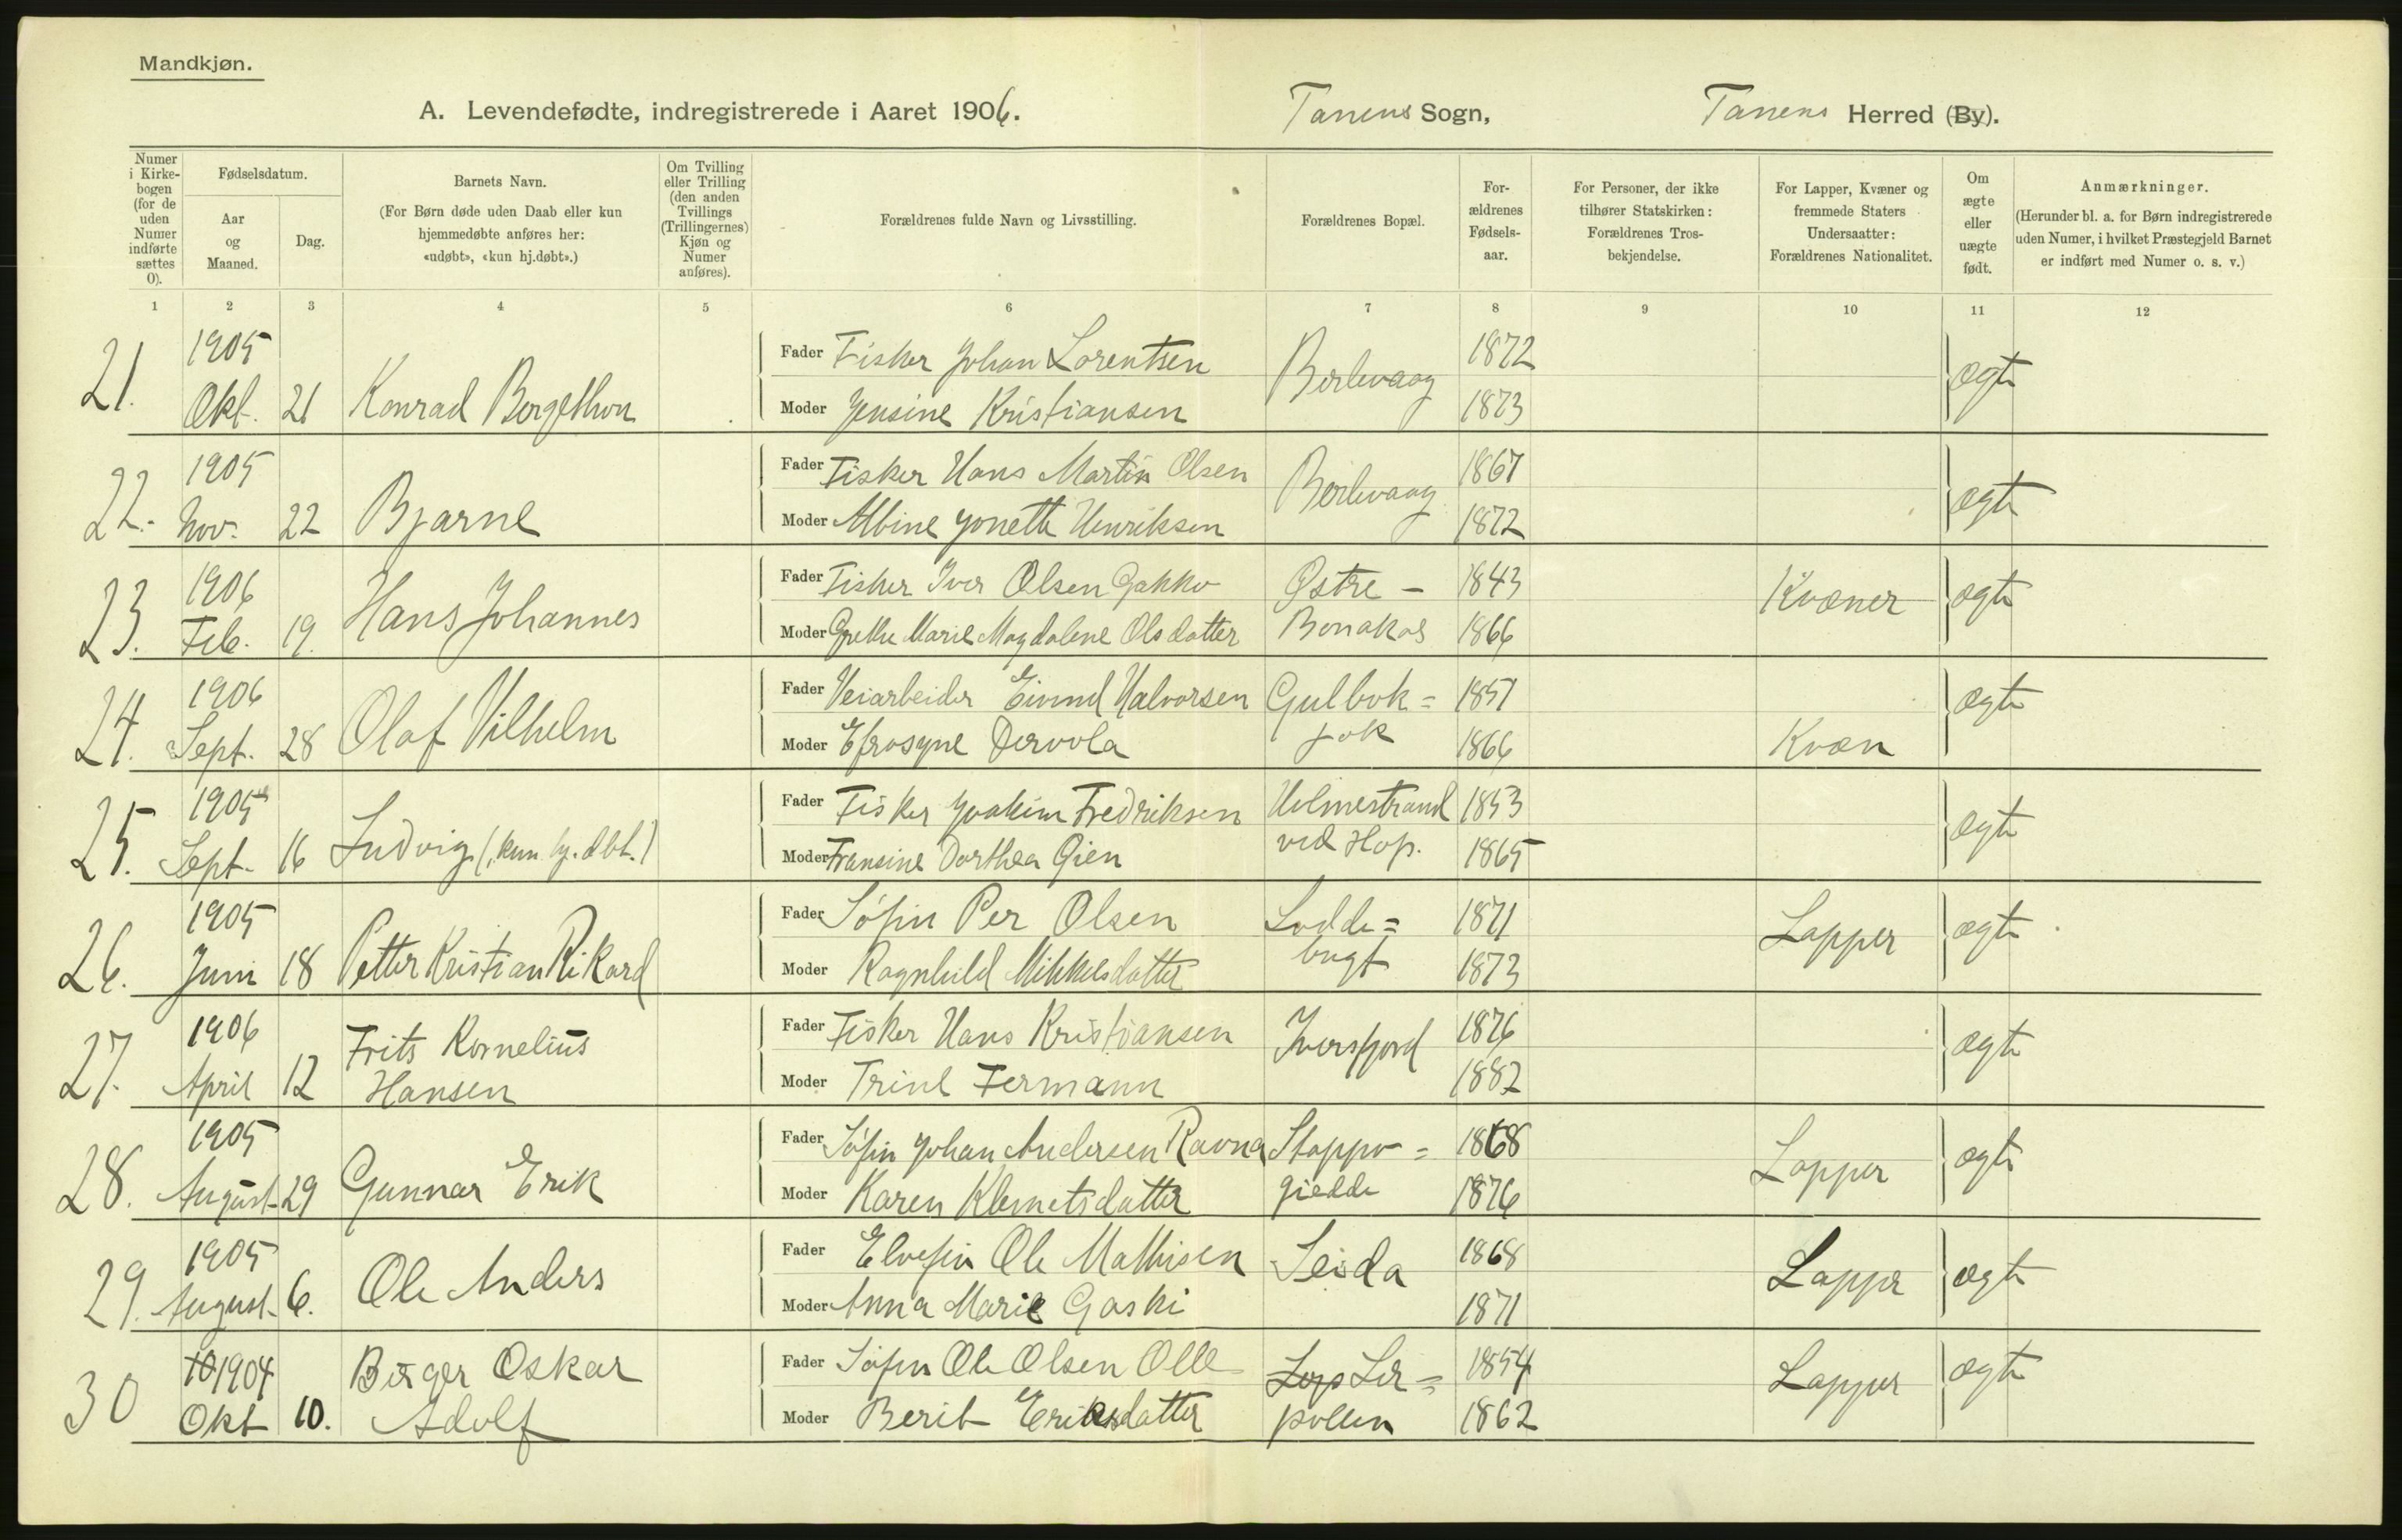 Mandkjøn.
A. Levendefødte, indregistrerede i Aaret 1906. Tanens Sogn, Tanens Herred (By).
Numer i Kirkebogen (for de uden Numer indførte sættes 0).
Fødselsdatum.
Aar og Maaned.
Dag.
Barnets Navn.
(For Børn døde uden Daab eller kun hjemmedøbte anføres her: «udøbt», «kun hj.døbt».)
Om Tvilling eller Trilling (den anden Tvillings (Trillingernes) Kjøn og Numer anføres).
Forældrenes fulde Navn og Livsstilling.
Forældrenes Bopæl.
Forældrenes Fødselsaar.
For Personer, der ikke tilhører Statskirken: Forældrenes Trosbekjendelse.
For Lapper, Kvæner og fremmede Staters Undersaatter: Forældrenes Nationalitet.
Om ægte eller uægte født.
Anmærkninger.
(Herunder bl. a. for Børn indregistrerede uden Numer, i hvilket Præstegjeld Barnet er indført med Numer o. s. v.)
1 2 3 4 5 6 7 8 9 10 11 12
21. 1905 Okt. 21 Konrad Bergethon
Fader Fisker Johan Lorentsen Berlevaag 1872 ægte
Moder Jensine Kristiansen 1873
22. 1905 Nov. 22 Bjarne
Fader Fisker Hans Martin Olsen Berlevaag 1867 ægte
Moder Albine Jonette Henriksen 1872
23. 1906 Feb. 19. Hans Johannes
Fader Fisker Iver Olsen Gakko Østre - 1843 Kvæner ægte
Moder Grethe Marie Magdalene Olsdatter Bonakas 1866
24. 1906 Sept. 28 Olaf Vilhelm
Fader Veiarbeider Eivind Halvorsen Gulbok= 1857 ægte
Moder Efrosyne Dervola jok 1866 Kvæn
25. 1905 Sept. 16 Ludvig (kun hj. dbt.)
Fader Fisker Joakim Fredriksen Holmestrand 1853 ægte
Moder Fransine Dorthea Gien ved Hop. 1865
26. 1905 Juni 18 Petter Kristian Rikard
Fader Søfin Per Olsen Lodde= 1871 Lapper ægte
Moder Ragnhild Mikkelsdatter bugt 1873
27. 1906 April 12 Frits Kornelius Hansen
Fader Fisker Hans Kristiansen Iversfjord 1876 ægte
Moder Trine Fermann 1882
28. 1905 August 29 Gunnar Erik
Fader Søfin Johan Andersen Ravna Stappo= 1868 Lapper ægte
Moder Karen Klemetsdatter giedde 1876
29. 1905 August 6. Ole Anders
Fader Elvefin Ole Mathisen Seida 1868 Lapper ægte
Moder Anna Marie Gaski 1871
30 10 1904 Okt 10. Birger Oskar Adolf
Fader Søfin Ole Olsen Olle Lops Ler= 1854 Lapper ægte
Moder Berit Eriksdatter pollen 1862